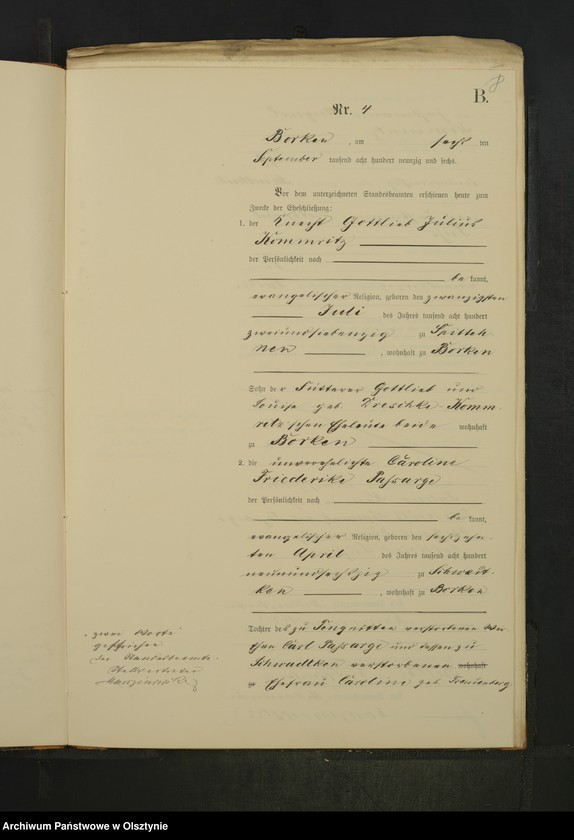 8
B.
Nr. 4
Borken, am sechs ten
September tausend acht hundert neunzig und sechs.
Vor dem unterzeichneten Standesbeamten erschienen heute zum
Zwecke der Eheschließung:
1. der Knecht Gottlieb Julius
Kommritz
der Persönlichkeit nach
be kannt,
evangelischer Religion, geboren den zwanzigsten
Juli des Jahres tausend acht hundert
zweiundsiebenzig zu Spitteh
nen, wohnhaft zu Borken
Sohn der Fütterer Gottlieb und
Louise geb. Dreschke Komm-
ritz'schen Eheleute beide wohnhaft
zu Borken
2. die unverehelichte Caroline
Friederike Passarge
der Persönlichkeit nach
be kannt,
evangelischer Religion, geboren den sechszehn-
ten April des Jahres tausend acht hundert
neunundsechszig zu Schwadt-
ken, wohnhaft zu Borken
Tochter des zu verstorbenen
Carl Passarge und dessen zu
Schwadtken verstorbenen wohnhaft
zu Ehefrau Caroline geb.
zwei Worte
gestrichen
der Standesbeamte
Stellvertreter
Archiwum Państwowe w Olsztynie